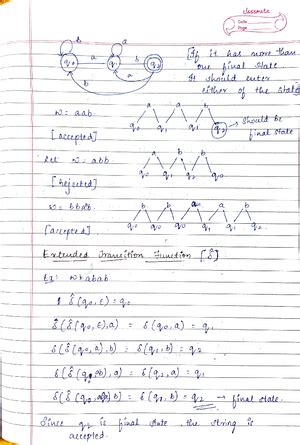 classmate
Date
Page
b a
q0 a q1 b q2
a
b
[If it has more than
one final state
It should enter
either of the state]
w = aab
[accepted]
a a b
q0 q1 q1 q2 → should be
final state
Let w = abb
[rejected]
a b b
q0 q1 q2 q0
[accepted]
Extended Transition Function [δ̂]
Ex: w = abab
δ̂(q0, ε) = q0
δ(δ̂(q0, ε), a) = δ(q0, a) = q1
δ(δ̂(q0, a), b) = δ(q1, b) = q2
= δ(q2, a) = q1
= δ(q1, b) = q2 → final state.
Since q2 is final state, the string is
accepted.